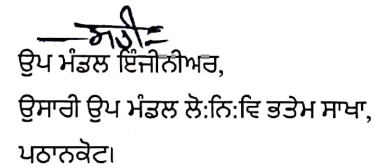 ਸਹੀ/-
ਉਪ ਮੰਡਲ ਇੰਜੀਨੀਅਰ,
ਉਸਾਰੀ ਉਪ ਮੰਡਲ ਲੋ:ਨਿ:ਵਿ ਭਤੇਮ ਸਾਖਾ,
ਪਠਾਨਕੋਟ।